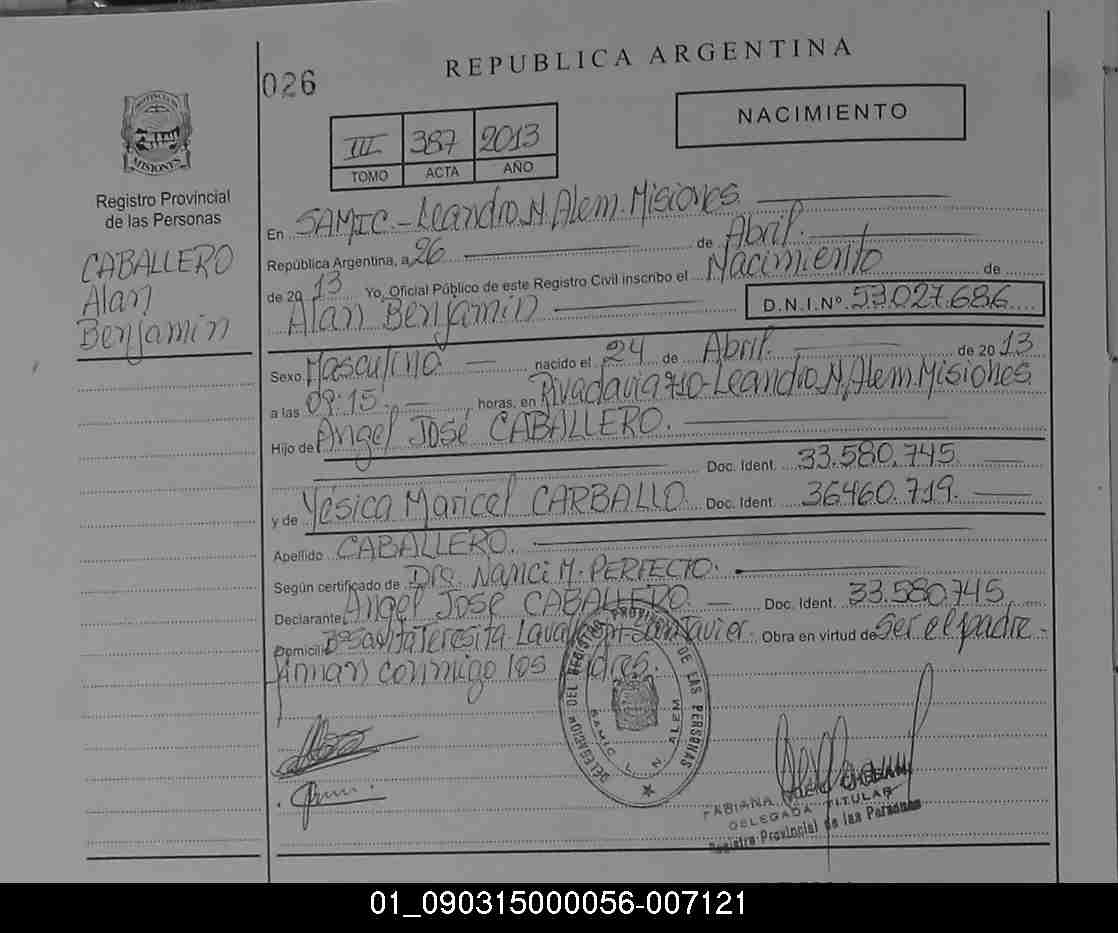 REPUBLICA ARGENTINA
026
NACIMIENTO
III 387 2013
TOMO ACTA AÑO
PROVINCIA DE MISIONES
Registro Provincial
de las Personas
CABALLERO
Alan
Benjamin
En SAMIC - Leandro N. Alem. Misiones
República Argentina, a 26 de Abril.
de 2013 Yo, Oficial Público de este Registro Civil inscribo el Nacimiento de
Alan Benjamin D.N.I.Nº 53.027.686
Sexo Masculino nacido el 24 de Abril. de 2013
a las 09:15 horas, en Rivadavia 710 - Leandro N. Alem. Misiones
Hijo de Angel José CABALLERO.
Doc. Ident. 33.580.745
y de Yésica Maricel CARBALLO Doc. Ident. 36460.719.
Apellido CABALLERO.
Según certificado de Dra. Nanci M. PERFECTO.
Declarante Angel José CABALLERO Doc. Ident. 33.580.745
Domicilio Bº Santa Teresita - San Javier Obra en virtud de Ser el padre.
Firman conmigo los padres.
DELEGACION DEL REGISTRO PROVINCIAL DE LAS PERSONAS
SAMIC L. N. ALEM
FABIANA
DELEGADA TITULAR
Registro Provincial de las Personas
01_090315000056-007121